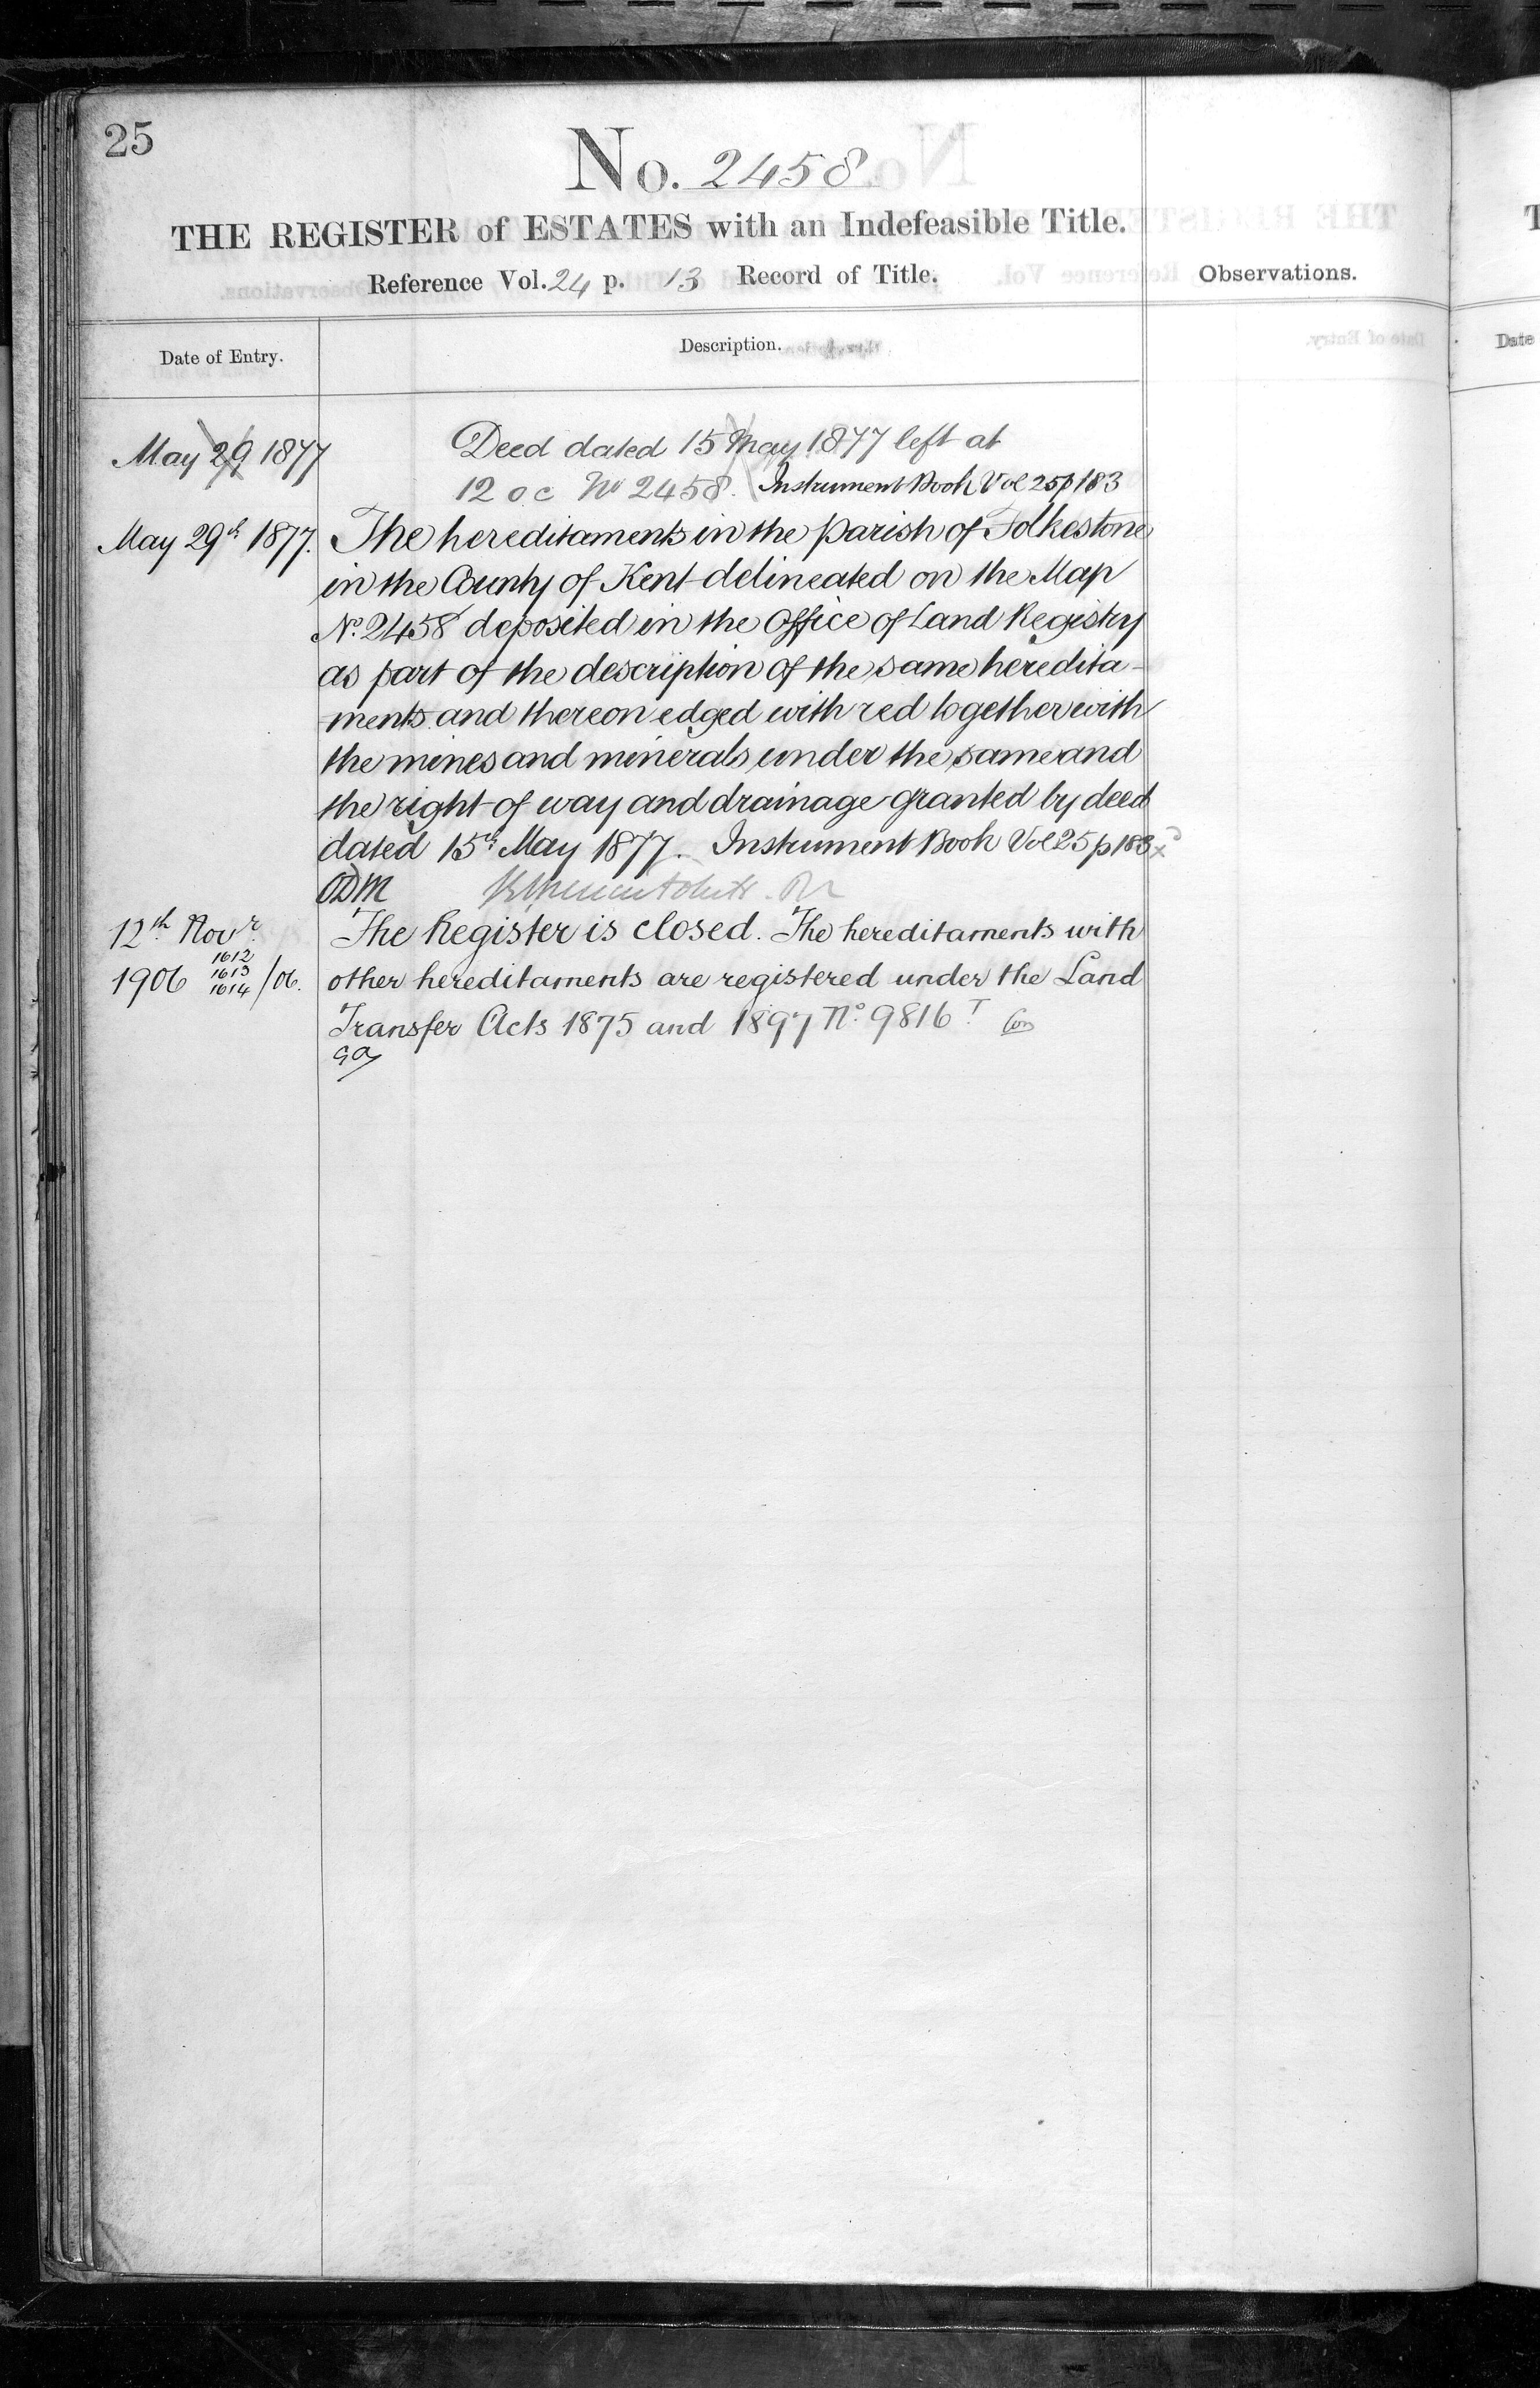 25
No. 2458
THE REGISTER of ESTATES with an Indefeasible Title.
Reference Vol. 24 p. 13 Record of Title.
Observations.
Date of Entry.
Description.
May 29 1877
Deed dated 15 May 1877 left at
12 o c No 2458. Instrument Book Vol 25 p 183
May 29th 1877.
The hereditaments in the parish of Folkestone
in the County of Kent delineated on the Map
No. 2458 deposited in the Office of Land Registry
as part of the description of the same heredita-
ments and thereon edged with red together with
the mines and minerals under the same and
the right of way and drainage granted by deed
dated 15th May 1877. Instrument Book Vol 25 p 183
ODM
12th Novr.
1906 1612 1613 1614 /06.
The Register is closed. The hereditaments with
other hereditaments are registered under the Land
Transfer Acts 1875 and 1897 No. 9816 T.
Date